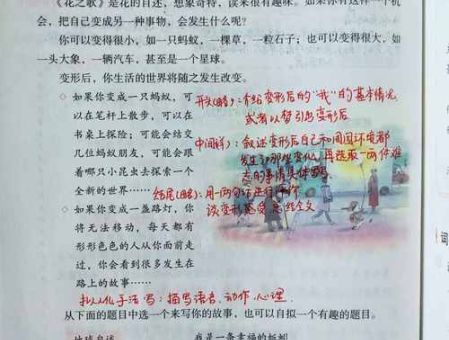 《花之歌》是花的自述，想象奇特，读来很有趣味。如果你有这样一个机
会，把自己变成另一种事物，会发生什么呢？
你可以变得很小，如一只蚂蚁，一棵草，一粒石子；也可以变得很大，如
一头大象，一辆汽车，甚至是一个星球。
变形后，你生活的世界将随之发生改变。
○ 如果你变成一只蚂蚁，可
以在笔杆上散步，可以在
书桌上探险；可能会结交
几位蚂蚁朋友，可能会跟
着哪只小昆虫去探索一个
全新的世界……
○ 如果你变成一盏路灯，你
将无法移动，每天都有
形形色色的人从你面前走
过，你会看到很多发生在
路上的故事……
开头（略）：介绍变形后的“我”的基本情况
或者以梦引出变形后
中间（详）：叙述变形后自己和周围环境都
发生了哪些变化，再选取一两件难
忘的事情具体写
结尾（略）：用一两句话进行
谈变形感受 总结全文
拟人化手法写：描写语言、动作、心理
从下面的题目中选一个来写你的故事，也可以自拟一个有趣的题目。
地球自述
我是一条幸福的蚯蚓
词